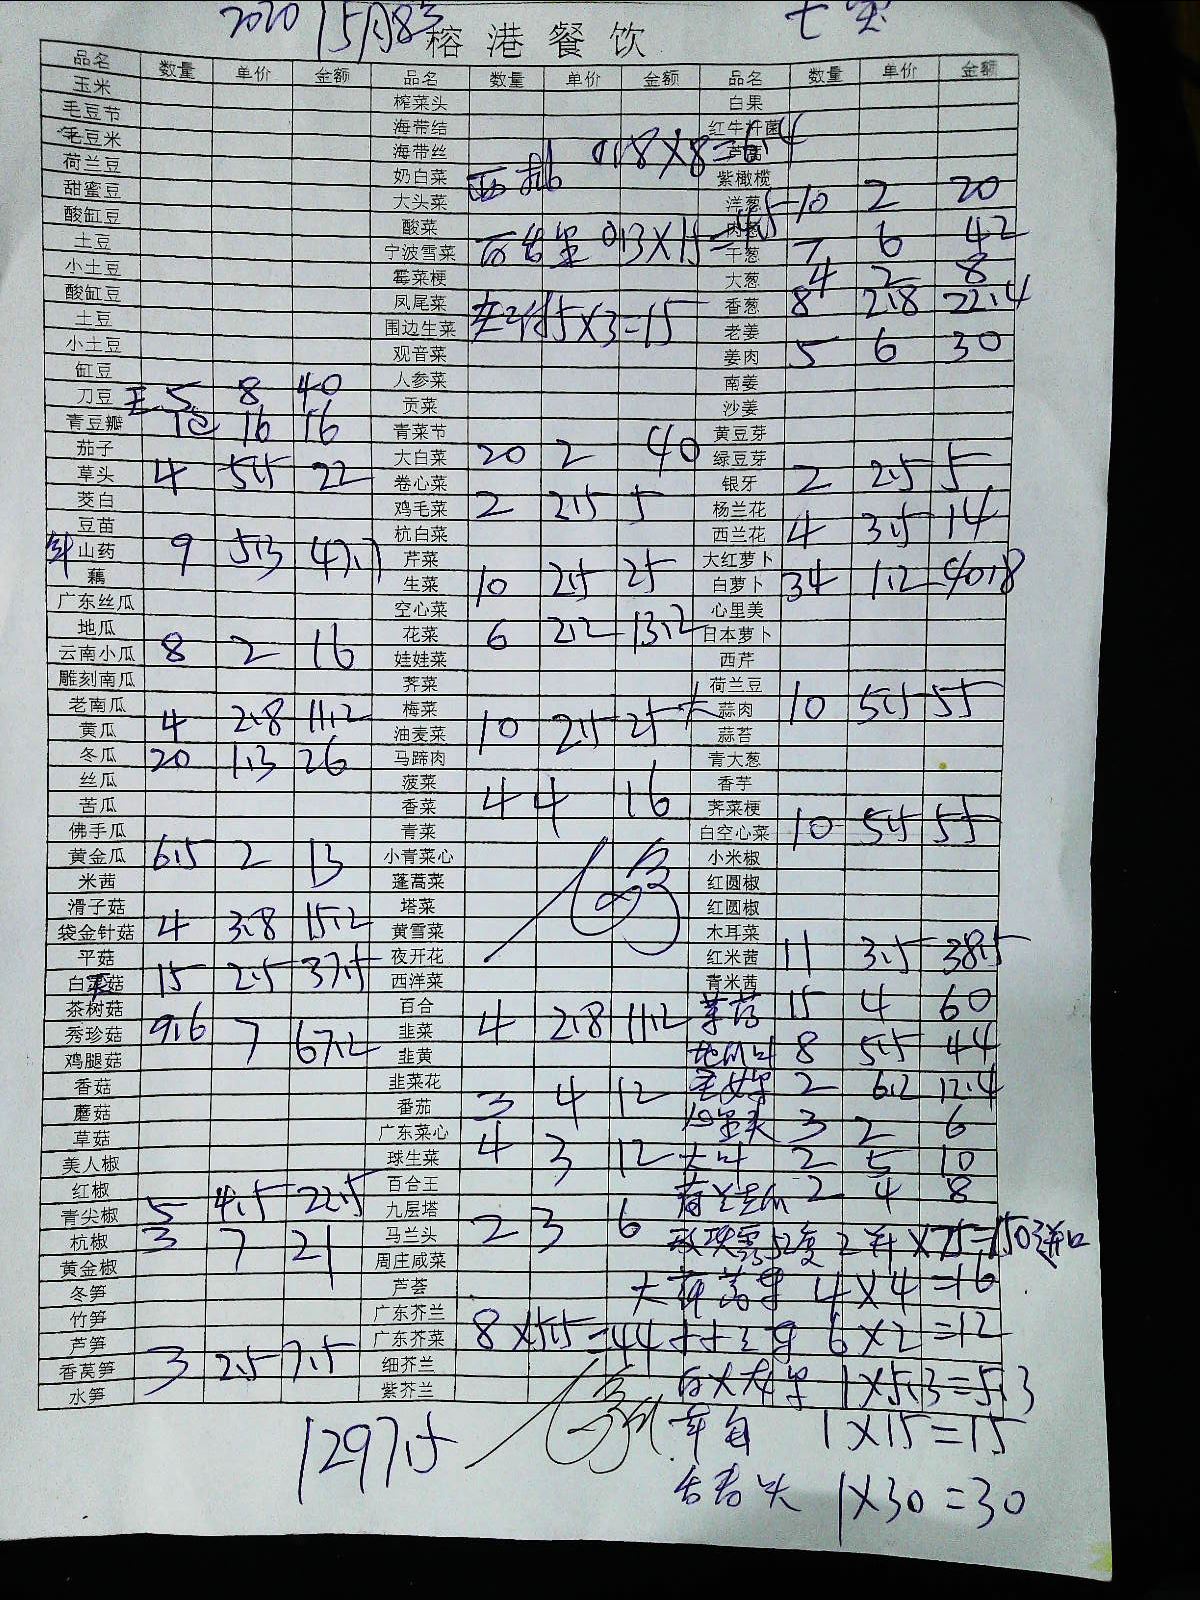 2020 15月8号
榕港餐饮
品名 数量 单价 金额 品名 数量 单价 金额 品名 数量 单价 金额
玉米 榨菜头 白果
毛豆节 海带结 红牛杆菌
毛豆米 海带丝 0.8X8=6.4
荷兰豆 奶白菜 紫橄榄
甜蜜豆 大头菜 洋葱 10 2 20
酸缸豆 酸菜 肉葱
土豆 宁波雪菜 0.3X15=4.5 干葱 7 6 42
小土豆 霉菜梗 大葱 4 2 8
酸缸豆 凤尾菜 香葱 8 2.8 22.4
土豆 围边生菜 5X3=15 老姜
小土豆 观音菜 姜肉 5 6 30
缸豆 人参菜 南姜
刀豆 5 8 40 贡菜 沙姜
青豆瓣 1包 16 16 青菜节 黄豆芽
茄子 大白菜 20 2 40 绿豆芽
草头 4 5.5 22 卷心菜 银牙 2 2.5 5
茭白 鸡毛菜 2 2.5 5 杨兰花
豆苗 杭白菜 西兰花 4 3.5 14
山药 9 5.3 47.7 芹菜 大红萝卜
藕 生菜 10 2.5 25 白萝卜 34 1.2 40.8
广东丝瓜 空心菜 心里美
地瓜 花菜 6 2.2 13.2 日本萝卜
云南小瓜 8 2 16 娃娃菜 西芹
雕刻南瓜 荠菜 荷兰豆
老南瓜 梅菜 大 蒜肉 10 5.5 55
黄瓜 4 2.8 11.2 油麦菜 10 2.5 25 蒜苔
冬瓜 20 1.3 26 马蹄肉 青大葱
丝瓜 菠菜 香芋
苦瓜 香菜 4 4 16 荠菜梗
佛手瓜 青菜 白空心菜 10 5.5 55
黄金瓜 6.5 2 13 小青菜心 小米椒
米茜 蓬蒿菜 红圆椒
滑子菇 塔菜 红圆椒
袋金针菇 4 3.8 15.2 黄雪菜 木耳菜
平菇 夜开花 红米茜 11 3.5 38.5
白平菇 15 2.5 37.5 西洋菜 青米茜
茶树菇 百合 15 4 60
秀珍菇 9.6 7 67.2 韭菜 4 2.8 11.2
鸡腿菇 韭黄 8 5.5 44
香菇 韭菜花 2 6.2 12.4
蘑菇 番茄 3 4 12 3 2 6
草菇 广东菜心
美人椒 球生菜 4 3 12 大叶 2 5 10
红椒 百合王 2 4 8
青尖椒 5 4.5 22.5 九层塔
杭椒 3 7 21 马兰头 2 3 6 玫瑰露52度 2 X75=150 进口
黄金椒 周庄咸菜
冬笋 芦荟 4X4=16
竹笋 广东芥兰
芦笋 广东芥菜 8X5.5=44 6X2=12
香莴笋 3 2.5 7.5 细芥兰
水笋 紫芥兰 1X5.3=5.3
1297.5 1X15=15
1X30=30